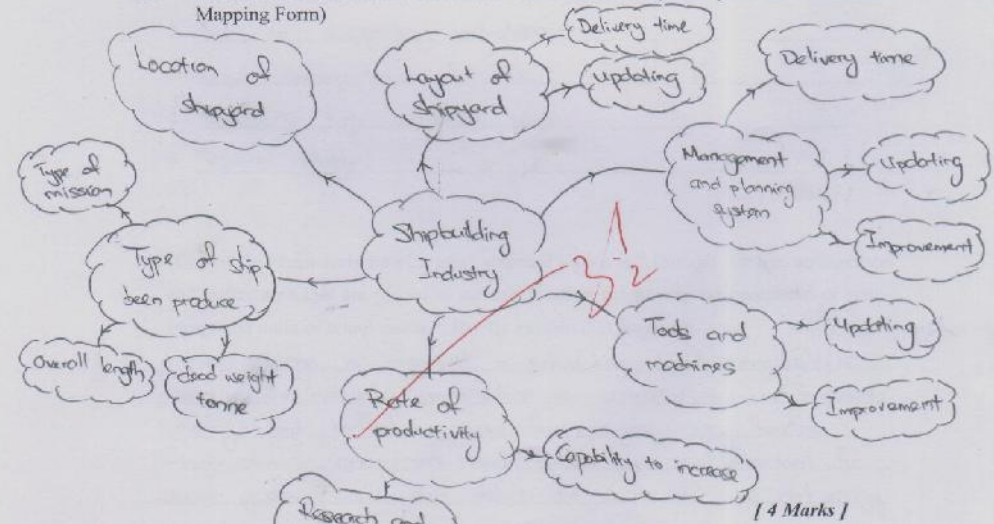 Mapping Form)
Location of
shipyard
Layout of
shipyard
Delivery time
updating
Delivery time
Management
and planning
system
updating
Improvement
Type of
mission
Type of ship
been produce
overall length
dead weight
tonne
Shipbuilding
Industry
3 1/2
Tools and
machines
updating
Improvement
Rate of
productivity
Capability to increase
Research and
[ 4 Marks ]